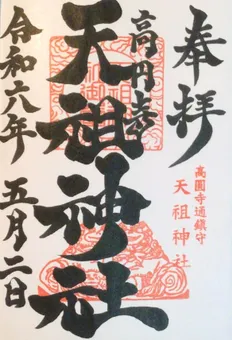 奉拝
高圓寺通鎮守
天祖神社
高円寺
天祖神社
令和六年
五月二日